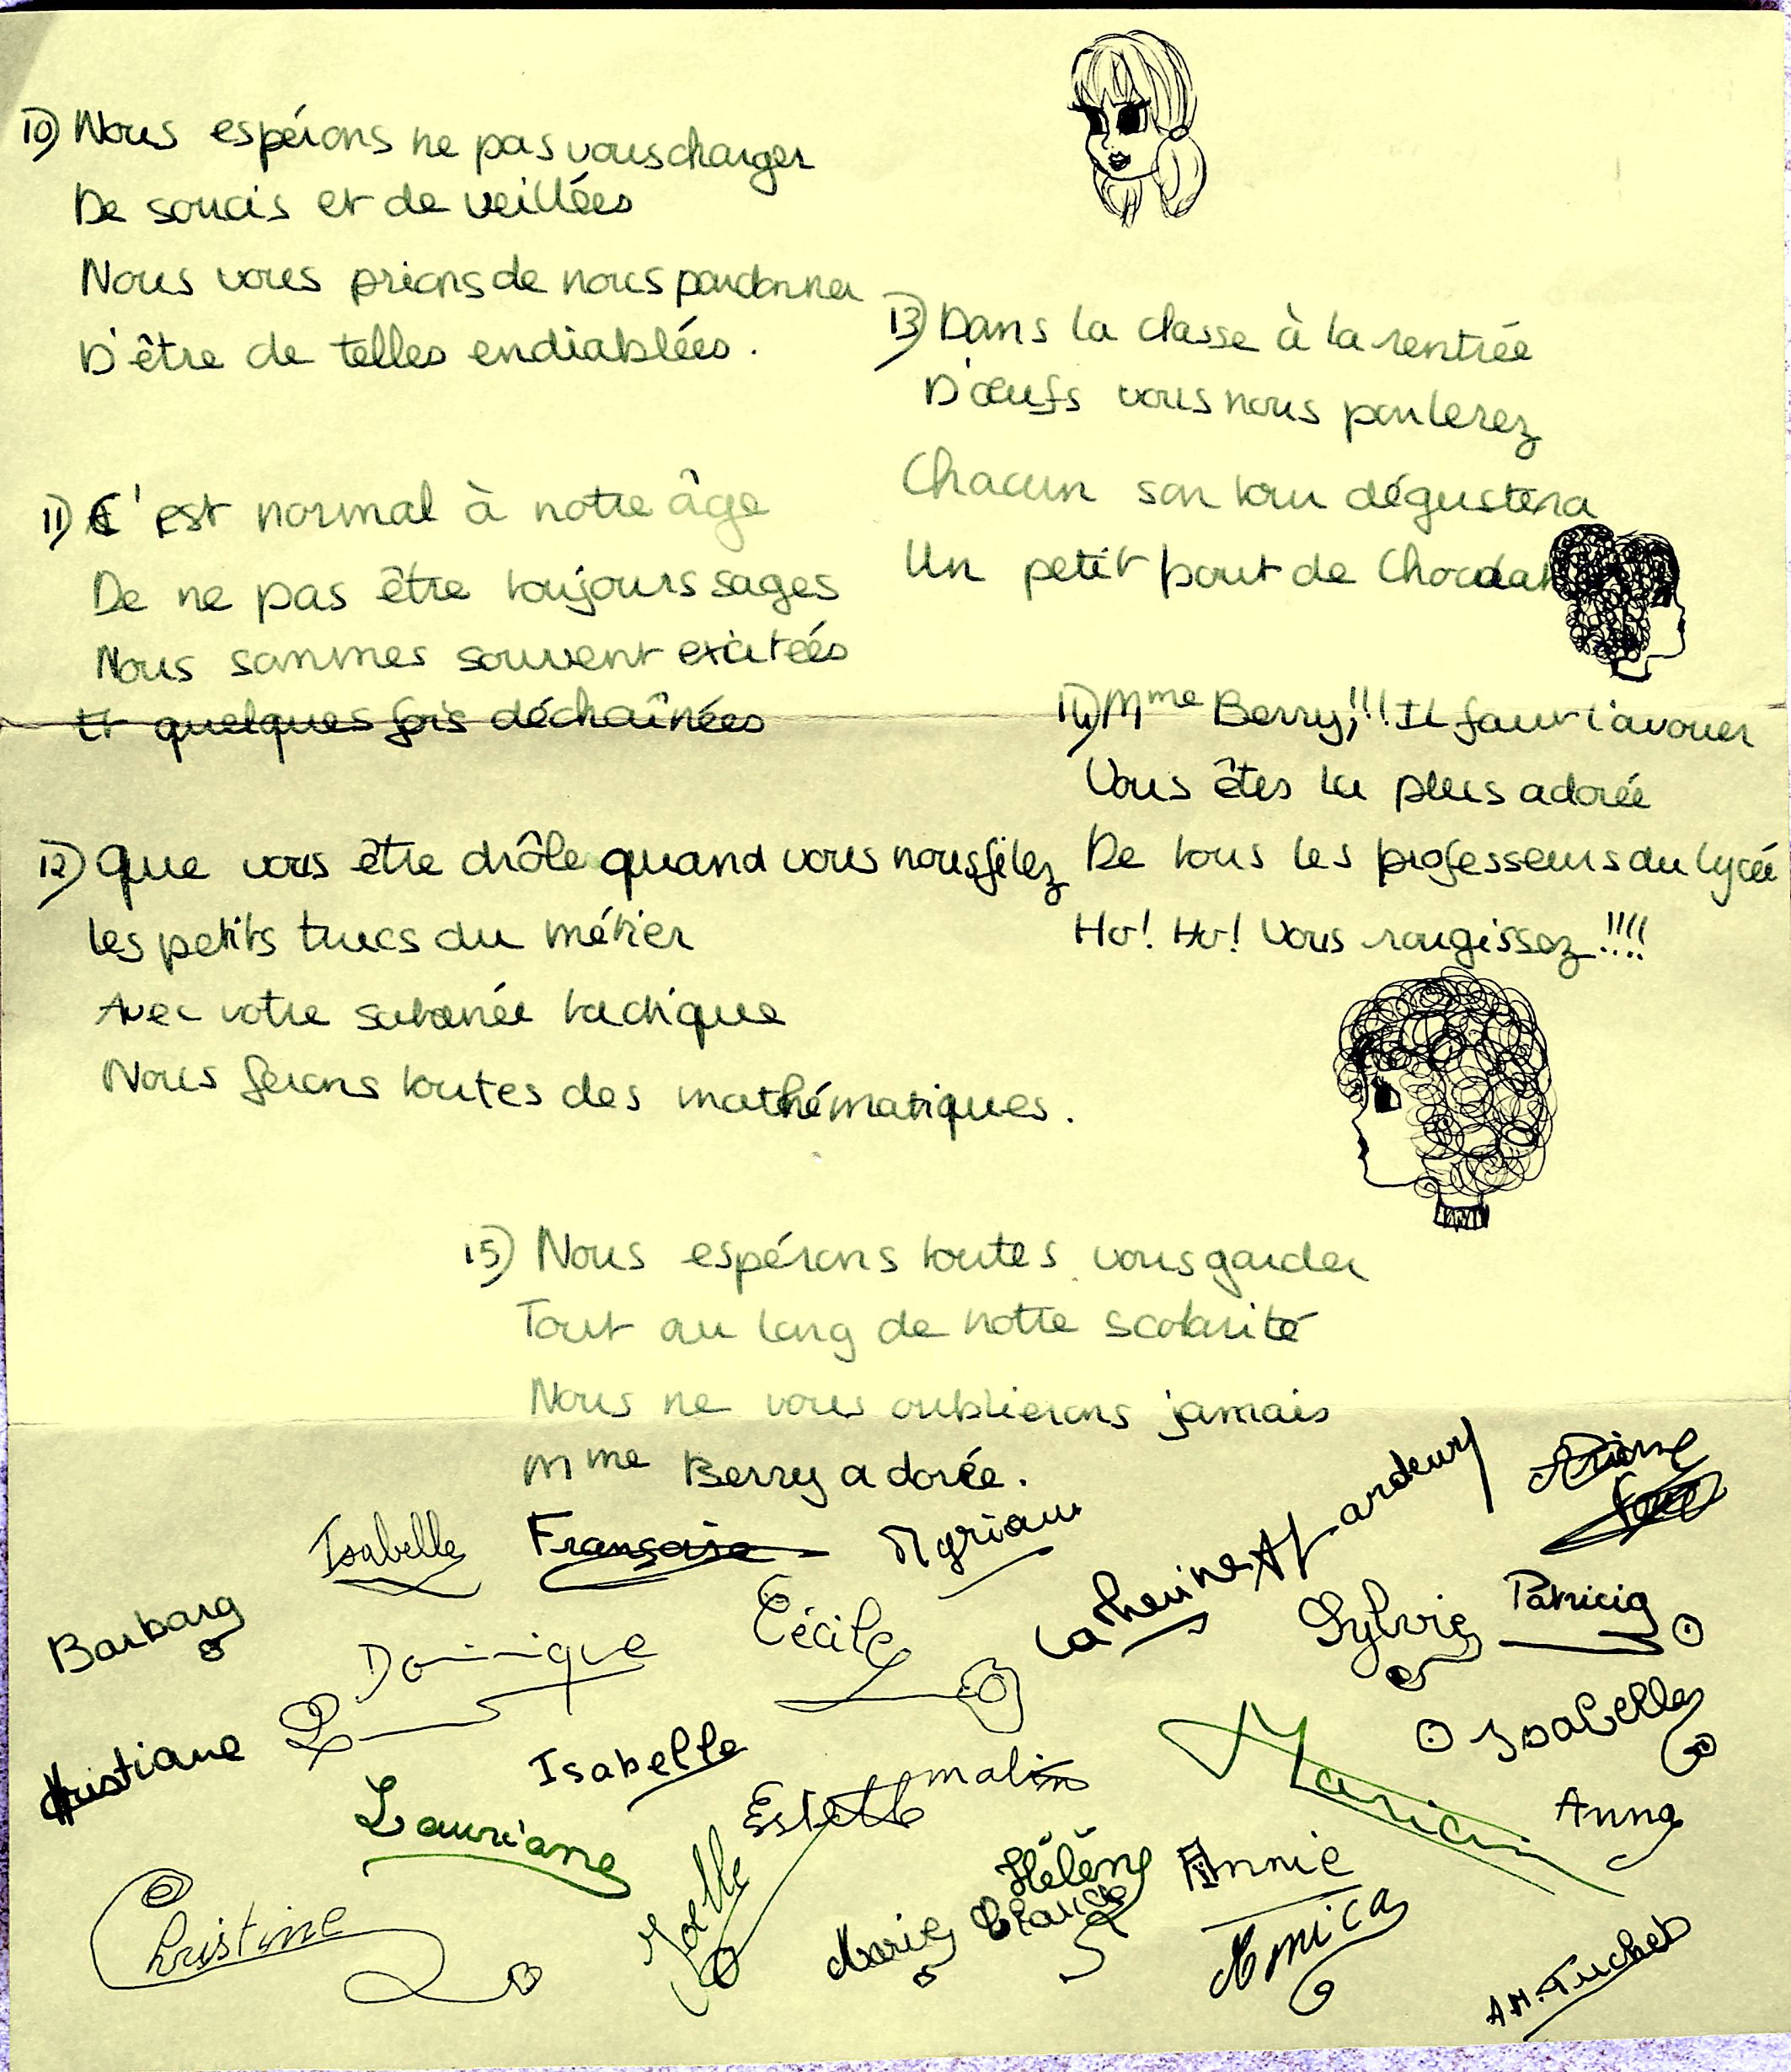 10) Nous espérons ne pas vous charger
De soucis et de veillées
Nous vous prions de nous pardonner
D'être de telles endiablées.
11) C'est normal à notre âge
De ne pas être toujours sages
Nous sommes souvent excitées
Et quelques fois déchaînées
12) Que vous être drôle quand vous nous filez
les petits trucs du métier
Avec votre satanée tactique
Nous ferons toutes des mathématiques.
13) Dans la classe à la rentrée
D'œufs vous nous parlerez
Chacun son tour dégustera
Un petit bout de Chocolat
14) Mme Berry,!!! Il faut l'avouer
Vous êtes la plus adorée
De tous les professeurs du lycée
Ho! Ho! Vous rougissez !!!!
15) Nous espérons toutes vous garder
Tout au long de notre scolarité
Nous ne vous oublierons jamais
Mme Berry adorée.
Isabelle Françoise Myriam Catherine
Barbara Dominique Cécile Sylvie Patricia
Christiane Isabelle Isabelle
Lauriane Estelle malin Marion Anna
Christine Joëlle Hélène Annie
Marie Claude Amica
A.M. Tuchet